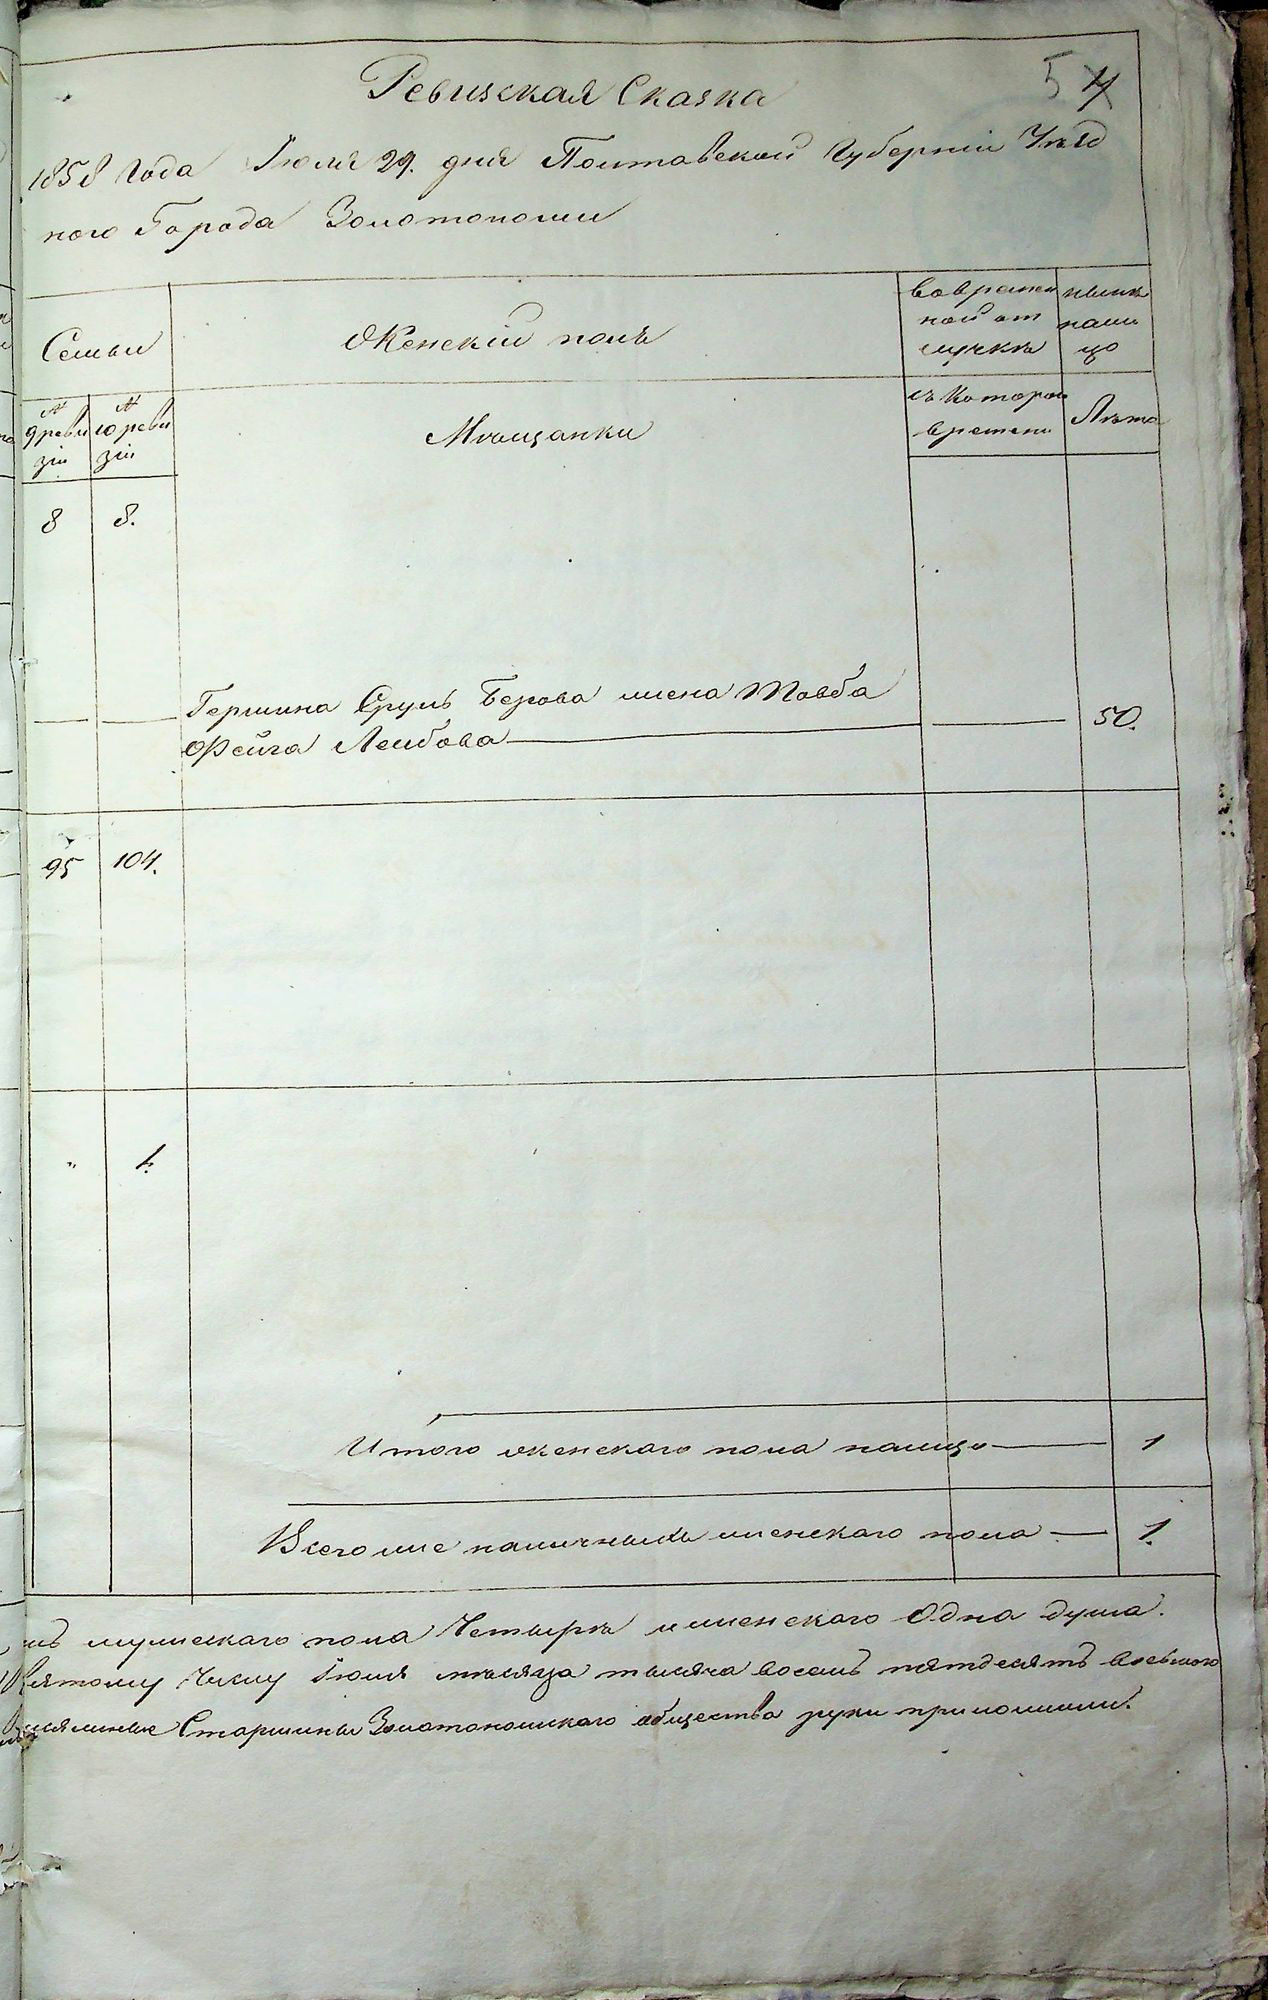 Ревизская Сказка
5 4
1858 Года Iюля 29. дня Полтавской Губернiи Уѣзд
ного Города Золотоноши
Семьи
Женскiй полъ
Вовремен
ной от
лучкѣ
нынѣ
нали
цо
№
9 реви
зiи
№
10 реви
зiи
Мѣщанки
съ Котораго
времени
Лѣта
8 8.
Гершина Сруль Берова жена Товба
Фейга Лейбова
50.
95 104.
„ 1.
Итого женскаго пола налицо 1
Всего же наличныхъ женскаго пола 1.
мужескаго пола Четыре и женскаго Одна душа.
Июля мѣсяца тысяча восемь пятдесятъ восьмого
Старшины Золотоношскаго общества руки приложили.